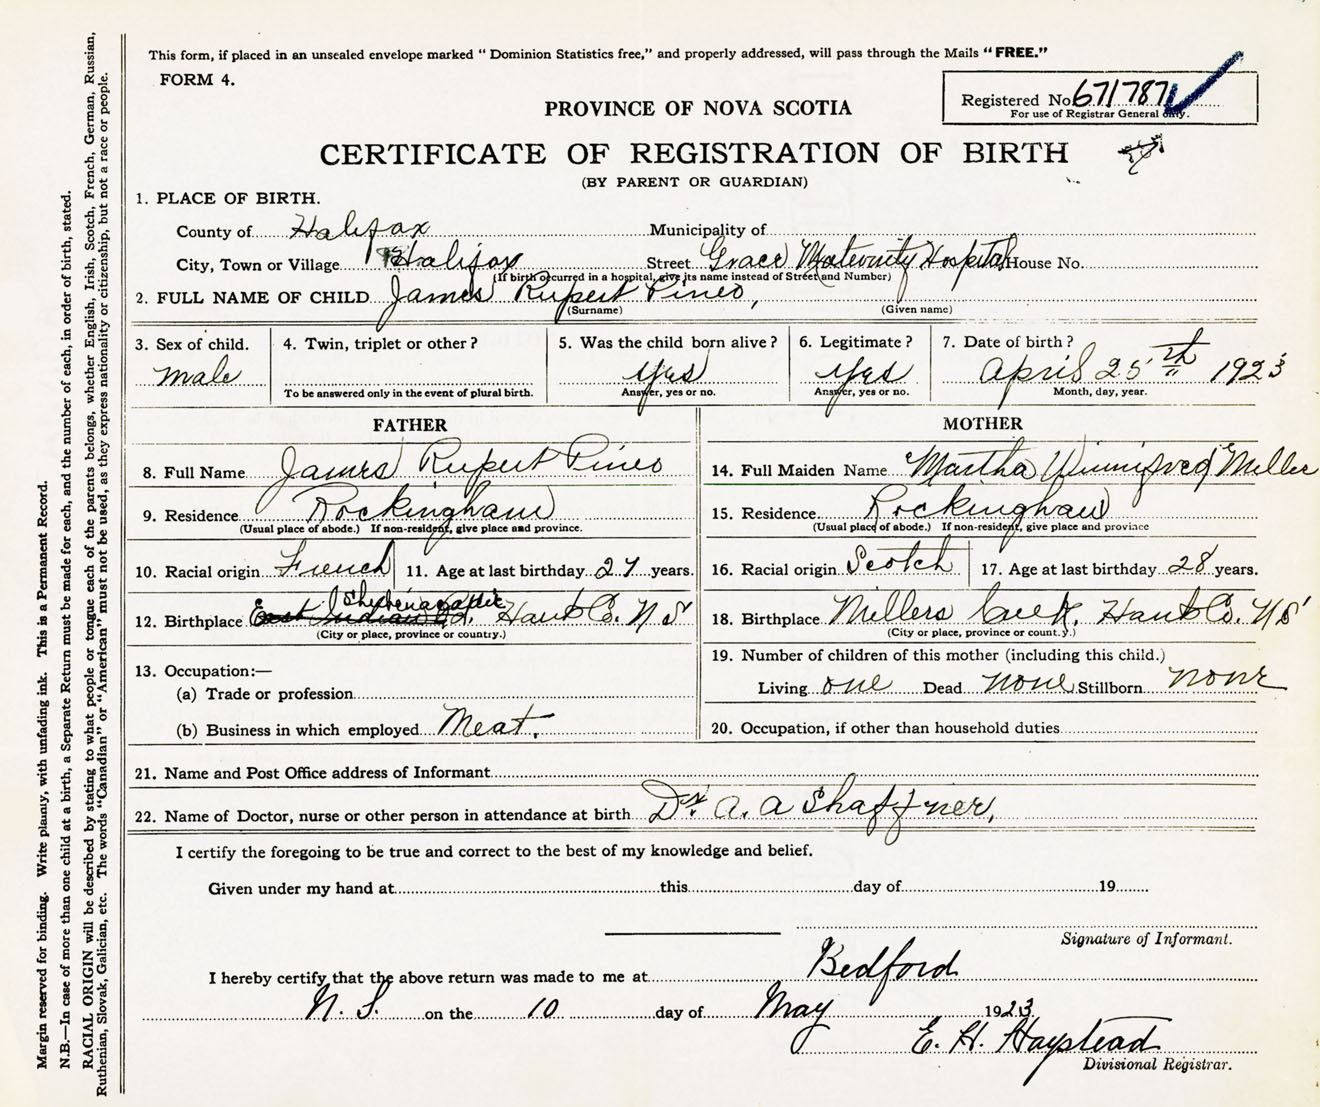 This form, if placed in an unsealed envelope marked “ Dominion Statistics free,” and properly addressed, will pass through the Mails “FREE.”
FORM 4.
Registered No. 671787
For use of Registrar General only.
PROVINCE OF NOVA SCOTIA
CERTIFICATE OF REGISTRATION OF BIRTH
(BY PARENT OR GUARDIAN)
1. PLACE OF BIRTH.
County of Halifax Municipality of
City, Town or Village Halifax Street Grace Maternity Hospital House No.
(If birth occurred in a hospital, give its name instead of Street and Number)
2. FULL NAME OF CHILD James Rupert Pineo,
(Surname) (Given name)
3. Sex of child. 4. Twin, triplet or other? 5. Was the child born alive? 6. Legitimate? 7. Date of birth?
male yes yes April 25th 1923
To be answered only in the event of plural birth. Answer, yes or no. Answer, yes or no. Month, day, year.
FATHER MOTHER
8. Full Name James Rupert Pineo
14. Full Maiden Name Martha Winnifred Miller
9. Residence Rockingham
(Usual place of abode.) If non-resident, give place and province.
15. Residence Rockingham
(Usual place of abode.) If non-resident, give place and province
10. Racial origin French 11. Age at last birthday 27 years.
16. Racial origin Scotch 17. Age at last birthday 28 years.
Shubenacadie
12. Birthplace Hants Co. N S
(City or place, province or country.)
18. Birthplace Millers Creek, Hants Co. N S
(City or place, province or count.y.)
13. Occupation:—
(a) Trade or profession
(b) Business in which employed Meat.
19. Number of children of this mother (including this child.)
Living one Dead none Stillborn none
20. Occupation, if other than household duties
21. Name and Post Office address of Informant
22. Name of Doctor, nurse or other person in attendance at birth Dr. A. A Shaffner,
I certify the foregoing to be true and correct to the best of my knowledge and belief.
Given under my hand at this day of 19
Signature of Informant.
I hereby certify that the above return was made to me at Bedford
N. S. on the 10 day of May 1923
E. H. Haystead
Divisional Registrar.
Margin reserved for binding. Write plainly, with unfading ink. This is a Permanent Record.
N.B.—In case of more than one child at a birth, a Separate Return must be made for each, and the number of each, in order of birth, stated.
RACIAL ORIGIN will be described by stating to what people or tongue each of the parents belongs, whether English, Irish, Scotch, French, German, Russian,
Ruthenian, Slovak, Galician, etc. The words “Canadian” or “American” must not be used, as they express nationality or citizenship, but not a race or people.